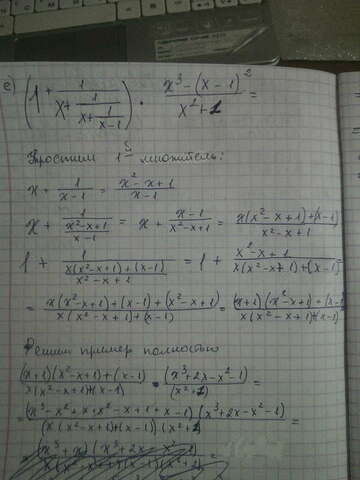 е) (1 + 1/(x + 1/(x + 1/(x-1)))) · (x³ - (x-1)²)/(x² + 1) =
Упростим 1й множитель:
x + 1/(x-1) = (x² - x + 1)/(x-1)
x + 1/((x²-x+1)/(x-1)) = x + (x-1)/(x²-x+1) = (x(x²-x+1)+(x-1))/(x²-x+1)
1 + 1/((x(x²-x+1)+(x-1))/(x²-x+1)) = 1 + (x²-x+1)/(x(x²-x+1)+(x-1))
= (x(x²-x+1)+(x-1)+(x²-x+1))/(x(x²-x+1)+(x-1)) = ((x+1)(x²-x+1)+(x-1))/(x(x²-x+1)+(x-1))
Решим пример полностью
((x+1)(x²-x+1)+(x-1))/(x(x²-x+1)+(x-1)) · (x³+2x-x²-1)/(x²+1) =
= ((x³-x²+x+x²-x+1+x-1)(x³+2x-x²-1))/((x(x²-x+1)+(x-1))(x²+1)) =
= ((x³+x)(x³+2x-x²-1))/((x(x²-x+1)+(x-1))(x²+1)) =